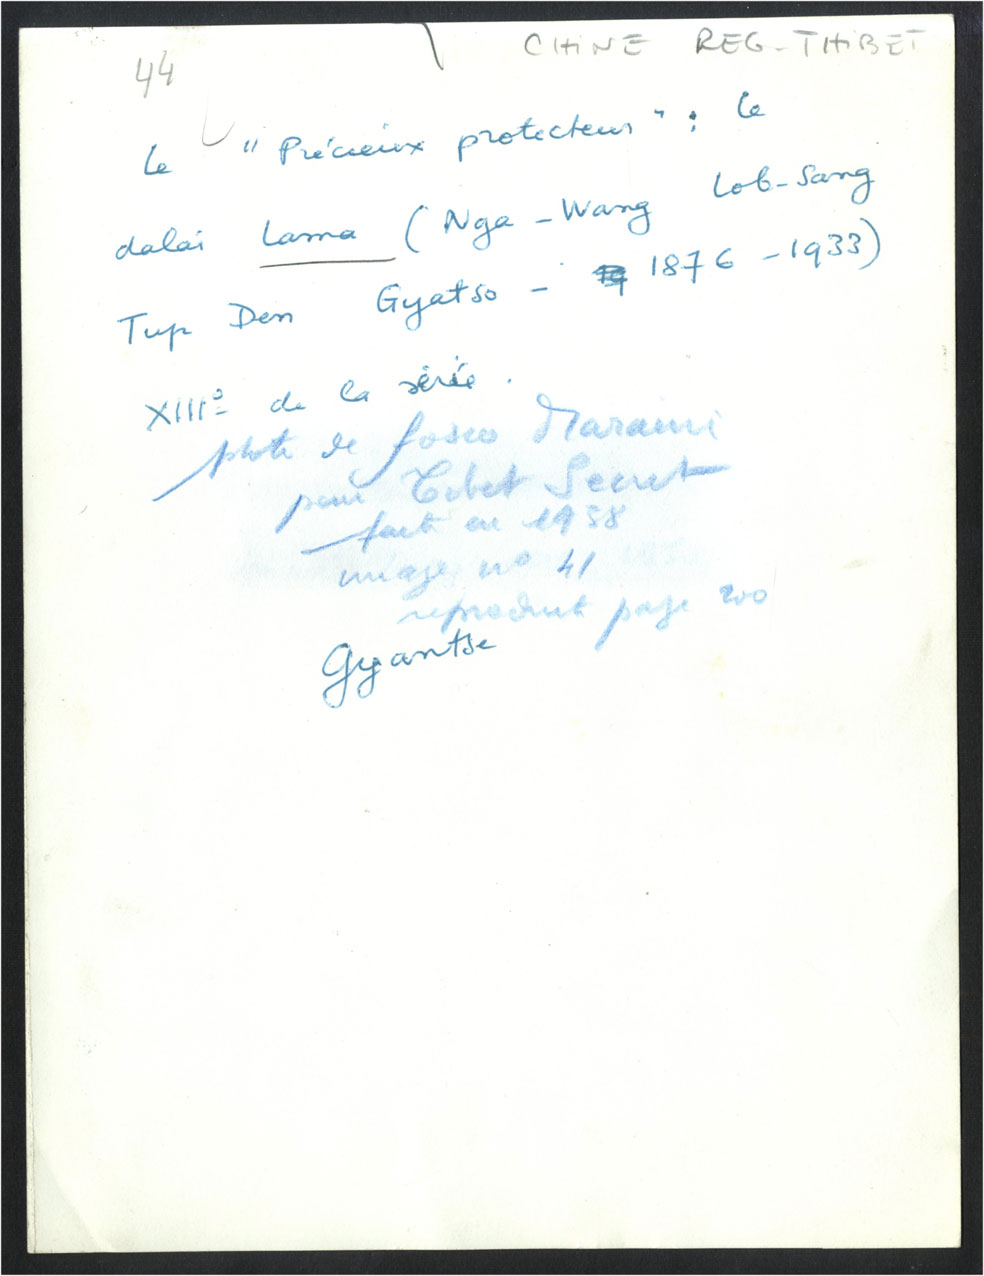 CHINE REG-THIBET
44
le "Précieux protecteur" : le
dalai Lama (Nga-Wang Lob-Sang
Tup Den Gyatso - 1876 - 1933)
XIIIe de la série.
photo de fosco Maraini
pour Tibet Secret
fait en 1938
image no 41
reproduit page 200
Gyantse